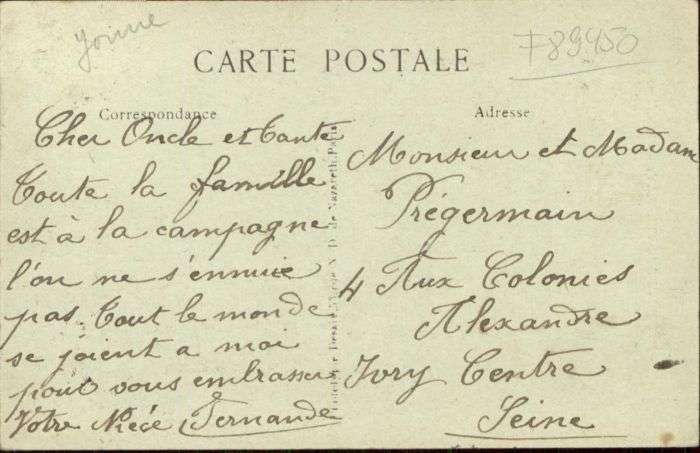 Yonne
F89450
CARTE POSTALE
Correspondance
Adresse
Cher Oncle et Tante
Toute la famille
est à la campagne
l'on ne s'ennuie
pas. Tout le monde
se joient a moi
pour vous embrasser
Votre Niéce Fernande
N. D. de Nazareth, Paris
Monsieur et Madam
Prégermain
4 Aux Colonies
Alexandre
Ivry Centre
Seine